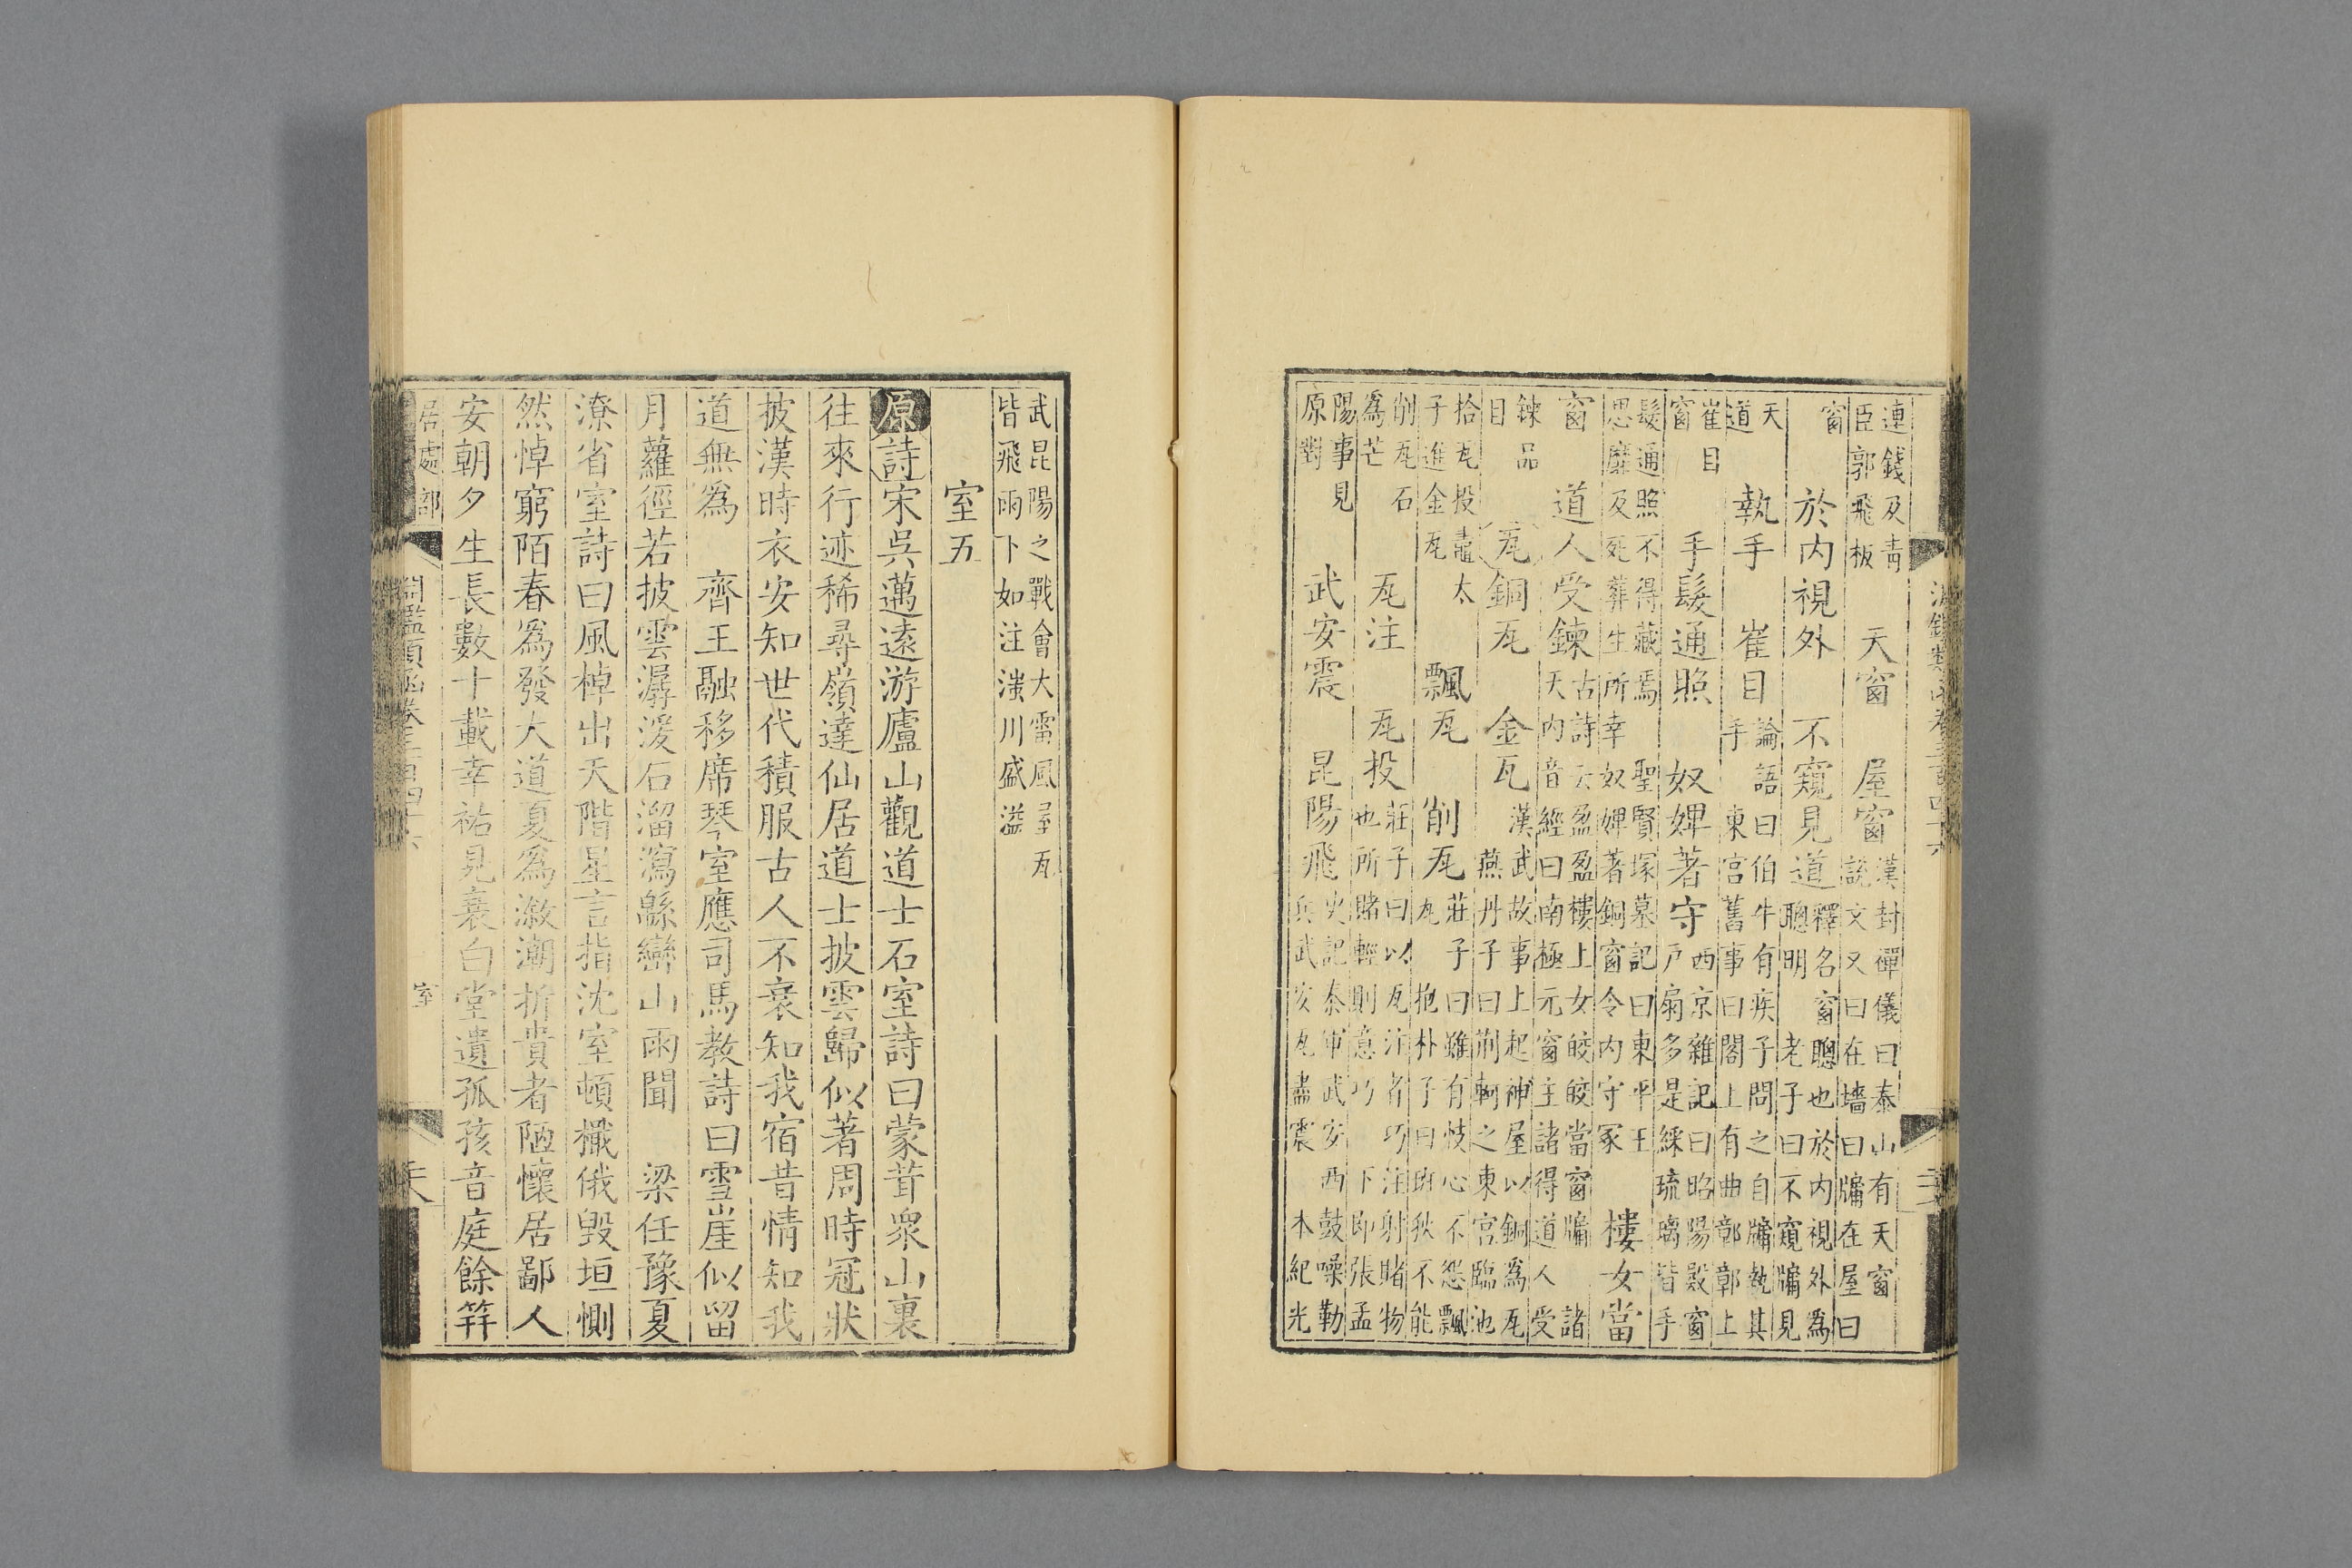 連錢及靑
臣郭飛板
天窗　屋窗
漢封禪儀曰泰山有天窗
説文又曰在墻曰牖在屋曰
窗
於内視外　不窺見道
釋名窗聰也於内視外為
聰明　老子曰不窺牖見
天
道
執手　崔目
論語曰伯牛有疾子問之自牖執其
手　東宮舊事曰閣上有曲鄣鄣上
崔目
窗
手髮通照　奴婢著守
西京雜記曰昭陽殿窗
戸扇多是綵琉璃皆手
髮通照不得藏焉　聖賢塚墓記曰東平王
思靡及死葬生所幸奴婢著銅窗令内守冢
樓女當
窗　道人受鍊
古詩云盈盈樓上女皎皎當窗牖　諸
天内音經曰南極元窗主諸得道人受
鍊品
目
瓦　銅瓦　金瓦
漢武故事上起神屋以銅為瓦
燕丹子曰荆軻之東宮臨池
拾瓦投龜太
子進金瓦
飄瓦　削瓦
莊子曰雖有忮心不怨飄
瓦　抱朴子曰班狄不能
削瓦石
為芒
瓦注　瓦投
莊子曰以瓦注者巧注射賭物
也所賭輕則意巧　下即張孟
陽事見
原對
武安震　昆陽飛
史記秦軍武安西鼓噪勒
兵武安瓦盡震　本紀光
武昆陽之戰會大雷風屋瓦
皆飛雨下如注滍川盛溢
室五
原詩宋吳邁遠游廬山觀道士石室詩曰蒙茸衆山裏
往來行迹稀尋嶺達仙居道士披雲歸似著周時冠狀
披漢時衣安知世代積服古人不衰知我宿昔情知我
道無為　齊王融移席琴室應司馬教詩曰雪崖似留
月蘿徑若披雲潺湲石溜瀉緜蠻山雨聞　梁任豫夏
潦省室詩曰風棹出天階星言指沈室頓檝俄毁垣惻
然悼窮陌春為發大道夏為漵潮折貴者陋懷居鄙人
安朝夕生長數十載幸祐見衰白堂遺孤孩音庭餘筓
居處部
淵鑑類函卷三百四十六
室